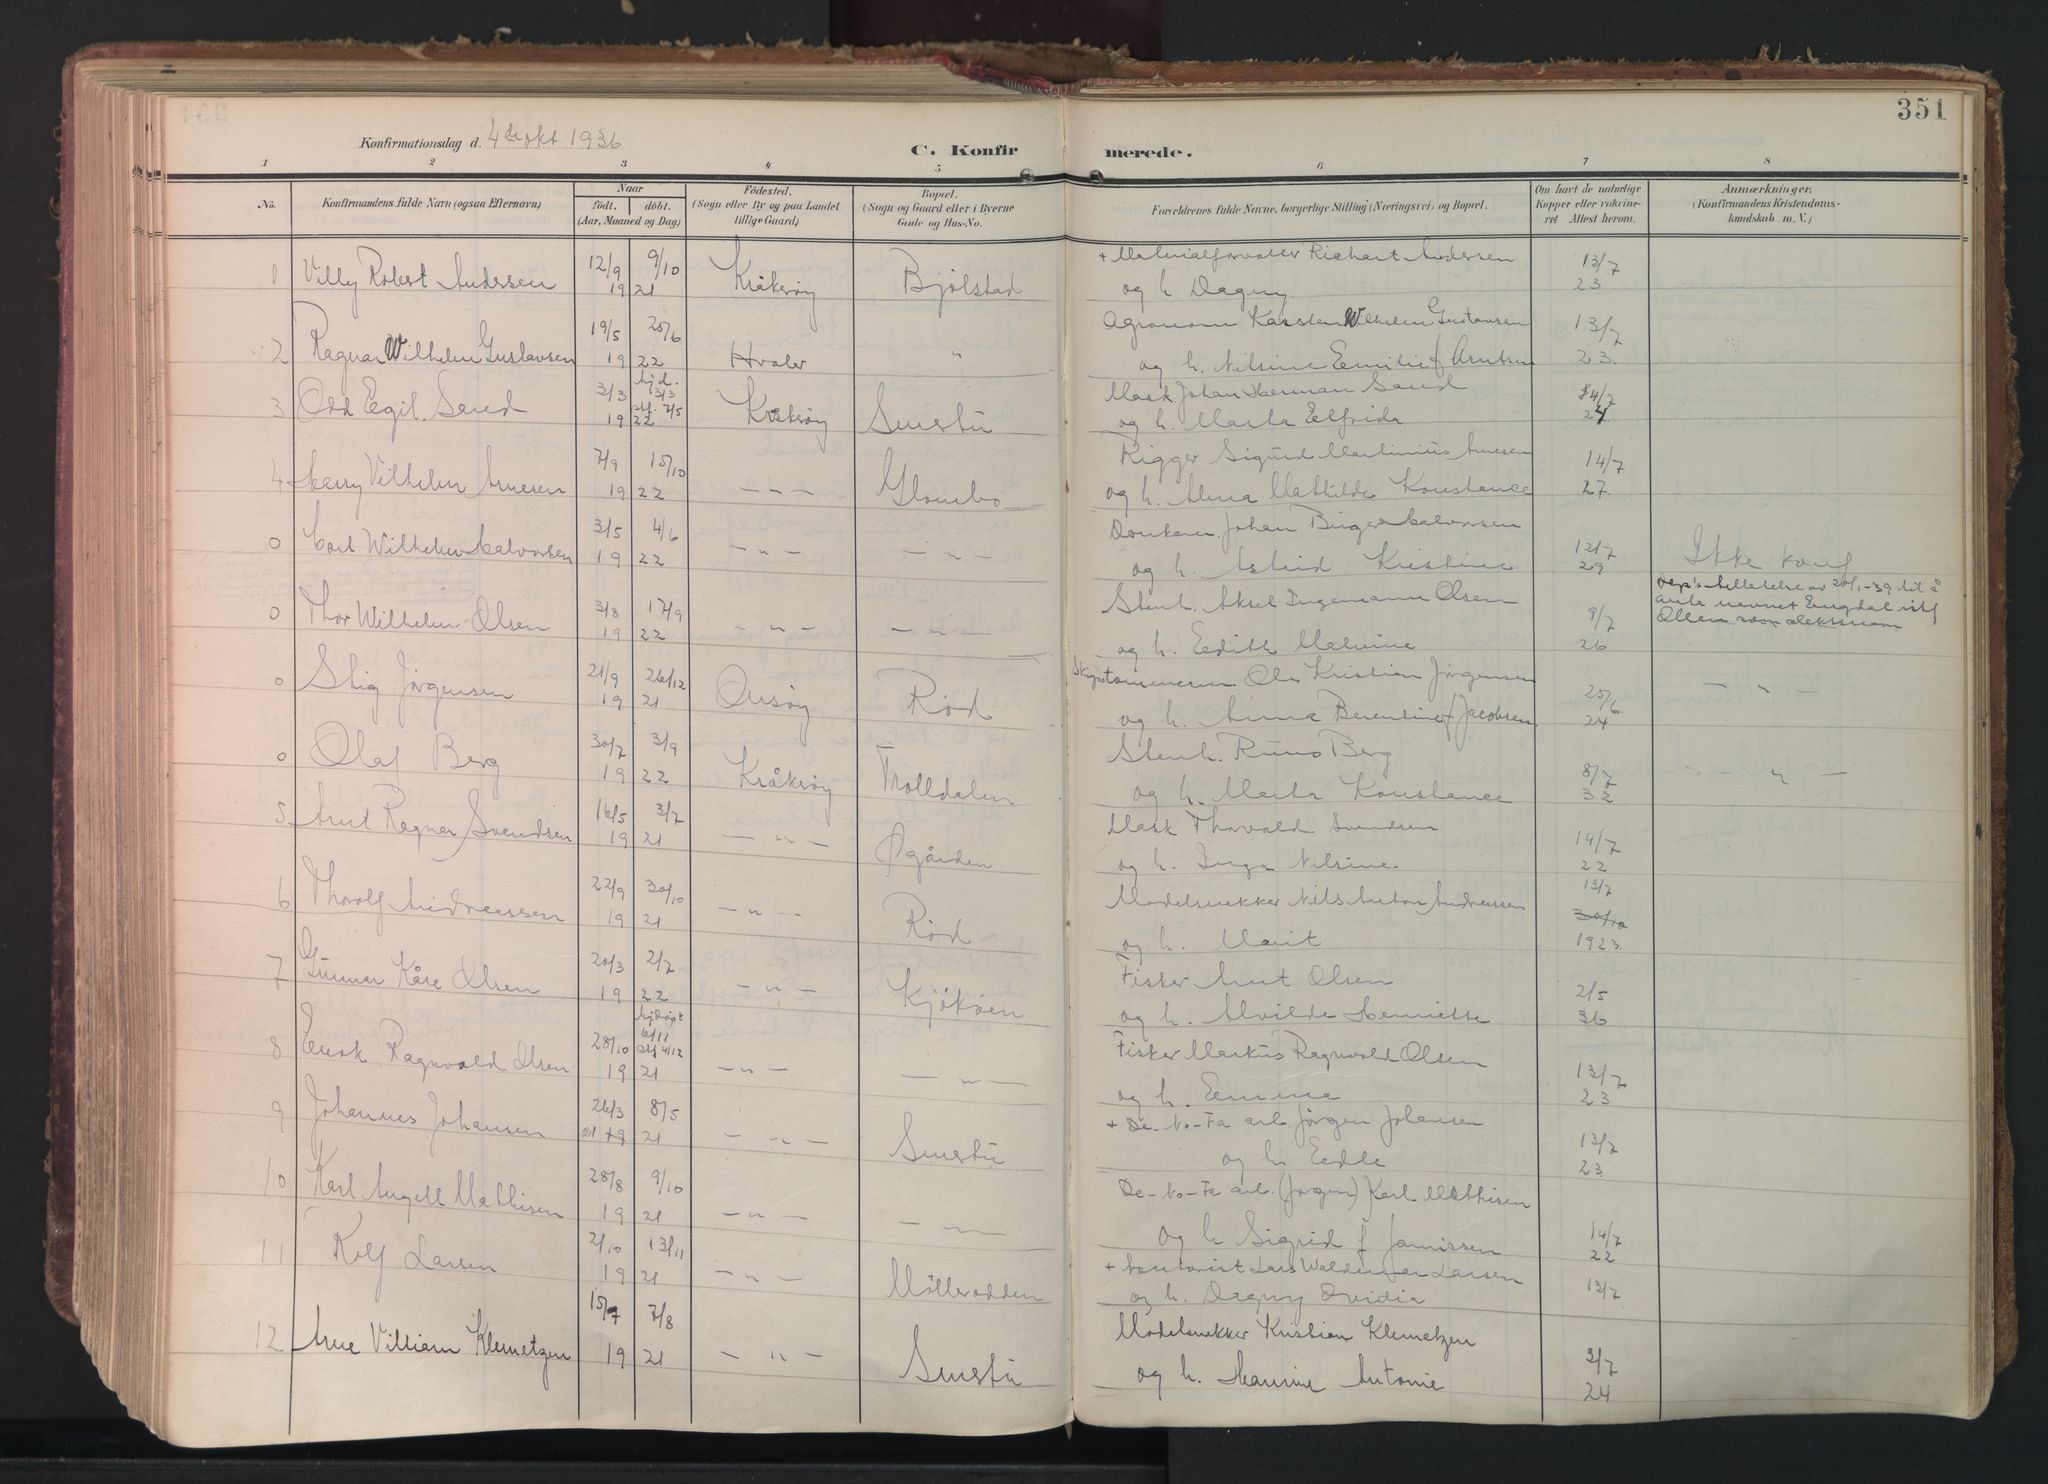 351
Konfirmationsdag d. 4de okt 1936
C. Konfirmerede.
1 2 3 4 5 6 7 8
No.
Konfirmandens fulde Navn (ogsaa Efternavn)
Naar
födt. döbt.
(Aar, Maaned og Dag)
Födested.
(Sogn eller By og paa Landet
tillige Gaard)
Bopæl.
(Sogn og Gaard eller i Byerne
Gade og Hus-No.
Forældrenes fulde Navne, borgerlige Stilling (Næringsvei) og Bopæl.
Om havt de naturlige
Kopper eller vakcine-
ret Attest herom.
Anmærkninger.
(Konfirmandens Kristendoms-
kundskab m. V.)
1 Villy Robert Anderssen 12/9 19 21 9/10 Kråkerøy Bjølstad
+ Materialforvalter Richart Andersen
og h. Dagny 13/7 23
2 Ragnar Wilhelm Gustavsen 19/5 19 22 25/6 Hvaler "
Agronom Karsten Wilhelm Gustavsen
og h. Nilsine Emilie f. Arntsen 13/7 23.
3 Odd Egil Sand 3/3 19 22 hjd. 13/3 stf. 7/5 Kråkerøy Smertu
Mask Johan Herman Sand
og h. Marta Elfrida 14/7 24
4 Harry Vilhelm Arnesen 7/9 19 22 15/10 – " – Glombo
Rigger Sigurd Martinius Arnesen
og h. Alma Mathilde Konstance 14/7 27.
0 Carl Wilhelm Halvorsen 3/5 19 22 4/6 – " – – " –
Johan Birger Halvorsen
og h. Astrid Kristine 12/7 29 Ikke konf
0 Thor Wilhelm Olsen 3/8 19 22 17/9 – " – – " –
Stenh. Aksel Ingemann Olsen
og h. Edith Malvine 9/7 26
Dep's tilladelse av 20/1-39 til å
anta navnet Engdal istf
Olsen som slektsnavn
0 Stig Jörgensen 21/9 19 21 26/12 Onsøy Rød
Skipstømmerm. Ole Kristian Jörgensen
og h. Anna Berentine f. Jacobsen 25/6 24 – " –
0 Olaf Berg 30/7 19 22 3/9 Kråkerøy Trolldalen
Stenh. Runo Berg
og h. Marta Konstance 8/7 32 – " –
5 Arnt Ragnar Svendsen 16/5 19 21 3/7 – " – Øgården
Mask Thorvald Svendsen
og h. Inga Nilsine 14/7 22
6 Thorolf Andreassen 22/9 19 21 30/10 – " – Rød
Modelsnekker Nils Anton Andreassen
og h. Marit 13/7 30/10 1923.
7 Gunnar Kåre Olsen 20/3 19 22 2/7 – " – Kjøkøen
Fisker Arnt Olsen
og h. Alvilde Henriette 2/5 36
8 Ragnvald Olsen 28/10 19 21 hjdøpt 6/11 stf 4/12 – " – – " –
Fisker Markus Ragnvald Olsen
og h. Emma 13/7 23
9 Johannes Johansen 26/3 21 19 21 8/5 – " – Smertu
+ De-No-Fa arb. Jörgen Johansen
og h. Edle 13/7 23
10 Karl Angell Mathisen 28/8 19 21 9/10 – " – – " –
De-No-Fa arb. (Jörgen) Karl Mathisen
og h Sigrid f. 14/7 22
11 Rolf Larsen 2/10 19 21 13/11 – " – Möllerodden
+ Lars Waldemar Larsen
og h. Dagny Ovidia 13/7
12 Arne Villiam Klemetzen 15/7 19 21 7/8 – " – Smertu
Modelsnekker Kristian Klemetzen
og h. Hansine Antonie 2/7 24